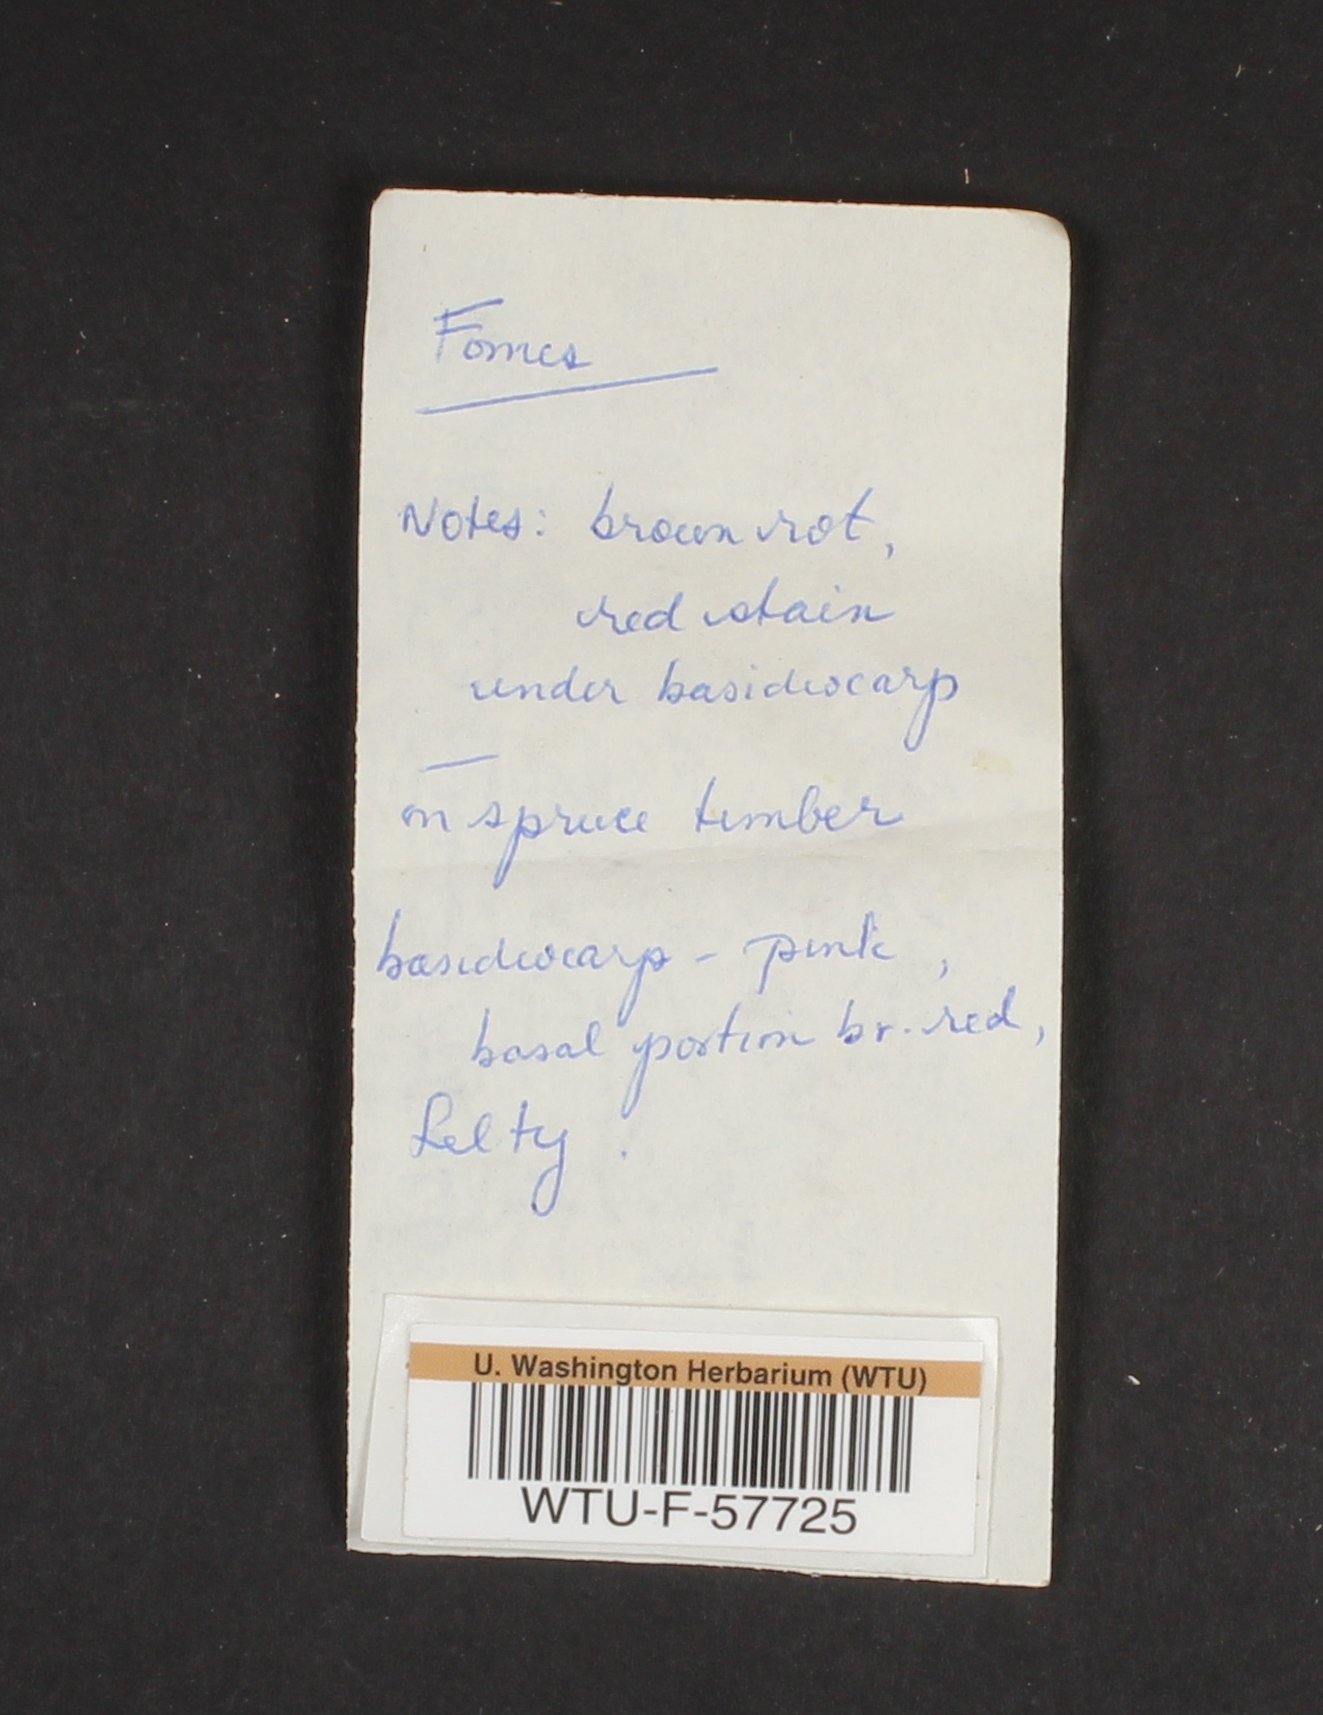 Fomes
Notes: brown rot,
red stain
under basidiocarp
—
on spruce timber
basidiocarp - pink,
basal portion br. red,
felty.
U. Washington Herbarium (WTU)
WTU-F-57725